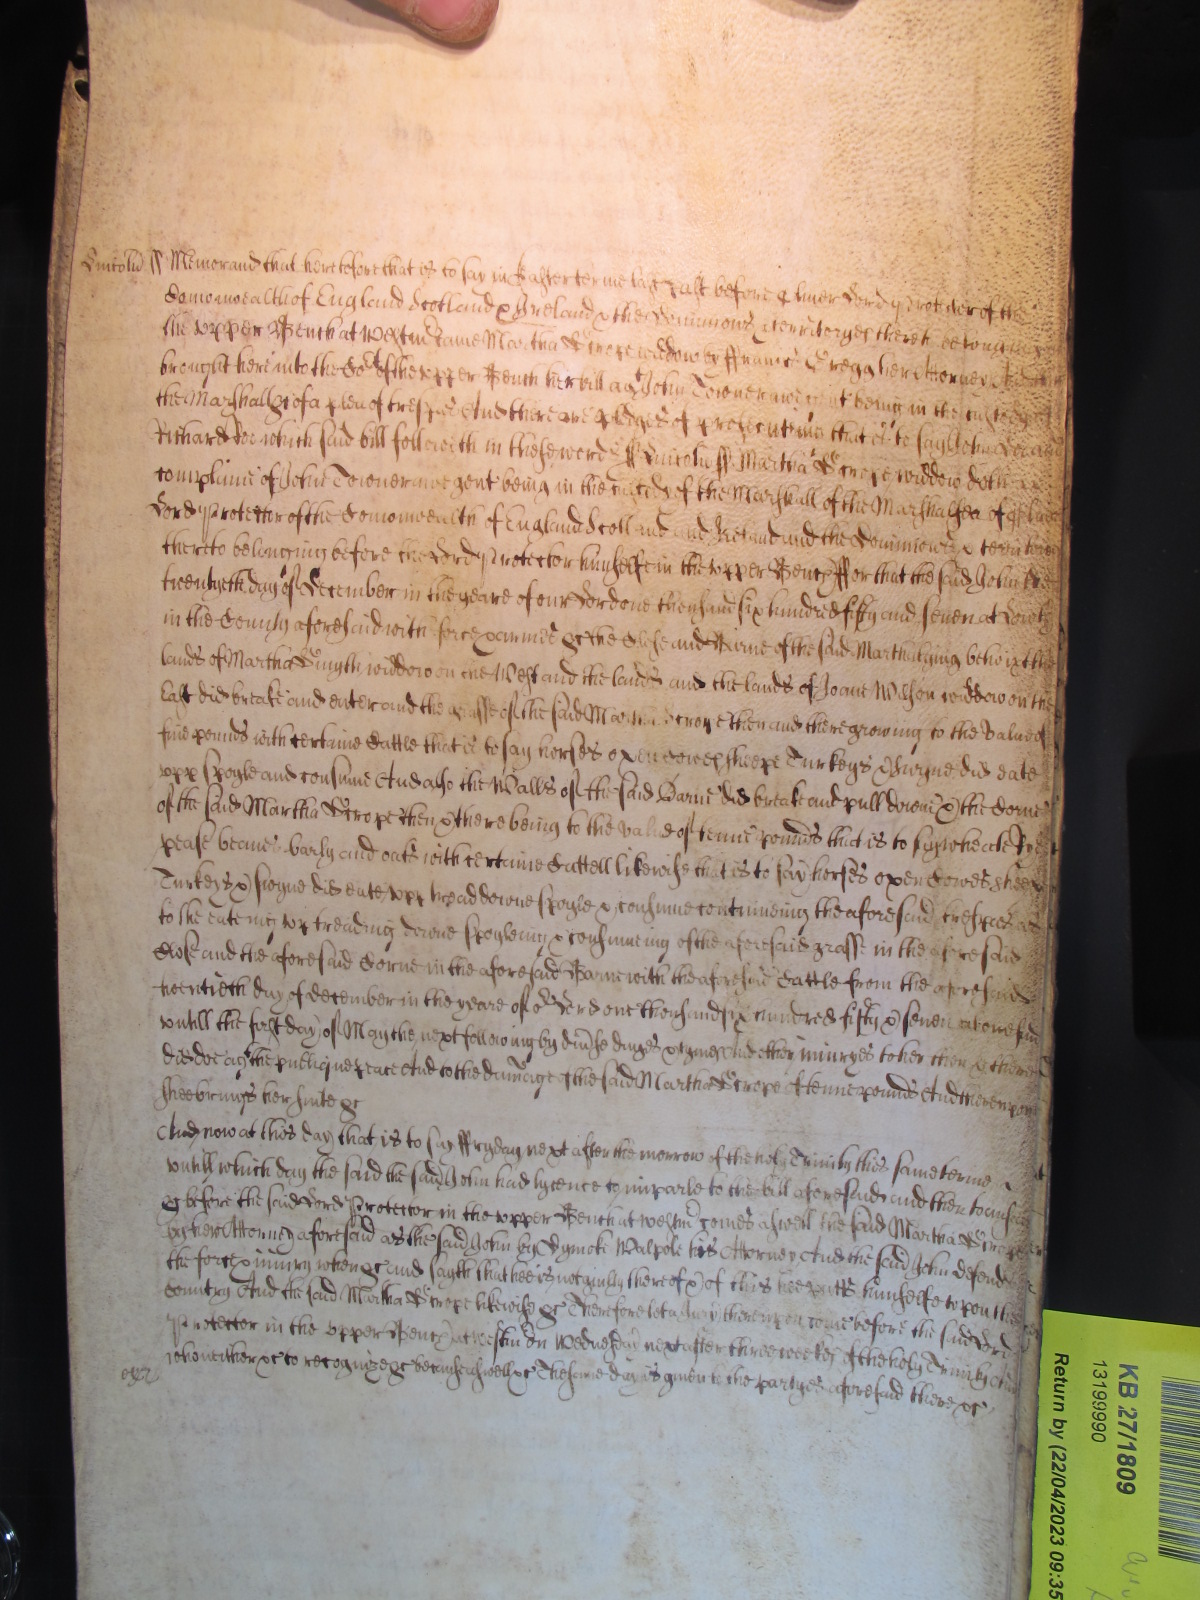 Lincoln ss Memorand that heretofore that is to say in Easter terme last past before Oliver Lord Protector of the
Comonwealth of England Scotland & Ireland & the Dominions & territoryes thereto belonging
in the Upper Bench at Westm came Martha Scrope widdow by ffrancis Gregg her Attorney And
brought here into the Co^rt of the upper Bench her bill ag^t John gent being in the custody of
the Marshall &c of a plea of trespas And there are pledges of prosecuting that is to say John Doe and
Richard Roe which said bill followeth in these words ss Lincoln ss Martha Scrope widdow doth
complaine of John gent being in the custody of the Marshall of the Marshalsea of
Lord Protector of the Comonwealth of England Scotland and Ireland and the Dominions & territoryes
thereto belonging before the Lord Protector himselfe in the upper Bench ffor that the said John the
twentyeth day of December in the yeare of our Lord one thousand six hundred fifty and seven at
in the County aforesaid with force & armes &c the Close and Barne of the said Martha lying betwixt the
lands of Martha widdow on the West and the lands and the lands of Joane Wilson widdow on the
East did breake and enter and the grasse of the said Martha Scrope then and there growing to the value of
five pounds with certaine Cattle that is to say horses oxen Cowes sheepe Turkeys & swyne did eate
upp spoyle and consume And also the Walls of the said Barne did breake and pull downe & the Corne
of the said Martha Scrope then & there being to the value of tenne pounds that is to say wheate Rye
pease beanes barly and oats with certaine Cattell likewise that is to say horses oxen Cowes sheepe
Turkeys & swyne did eate upp tread downe spoyle & consume continueing the aforesaid trespas as
to the eateing up treading downe spoyleing & consumeing of the aforesaid grasse in the aforesaid
Close and the aforesaid Corne in the aforesaid Barne with the aforesaid Cattle from the aforesaid
twentieth day of December in the yeare of o^r Lord one thousand six hundred fifty & seven aforesaid
untill the first day of May then next following by diverse dayes & tymes And other injuryes to her then & there
did doe ag^t the publique peace And to the damage of the said Martha Scrope of tenne pounds And thereupon
shee brings her suite &c
And now at this day that is to say ffryday next after the morrow of the holy Trinity this same terme
untill which day the said the said John had lycence to imparle to the bill aforesaid and then to answer
&c before the said Lord Protector in the upper Bench at Westm comes aswell the said Martha Scrope
by her Attorney aforesaid as the said John by Dymoke Walpole his Attorney And the said John defends
the force & injury when &c and sayth that hee is not guilty thereof & of this hee putts himselfe upon the
Country And the said Martha Scrope likewise &c Therefore let a Jury thereupon come before the said Lord
Protector in the upper Bench at Westm on Wednesday next after three weekes of the holy Trinity And
who neither &c to recognize &c because aswell &c The same day is given to the partyes aforesaid there &c
KB 27/1809
13199990
Return by (22/04/2023 09:35